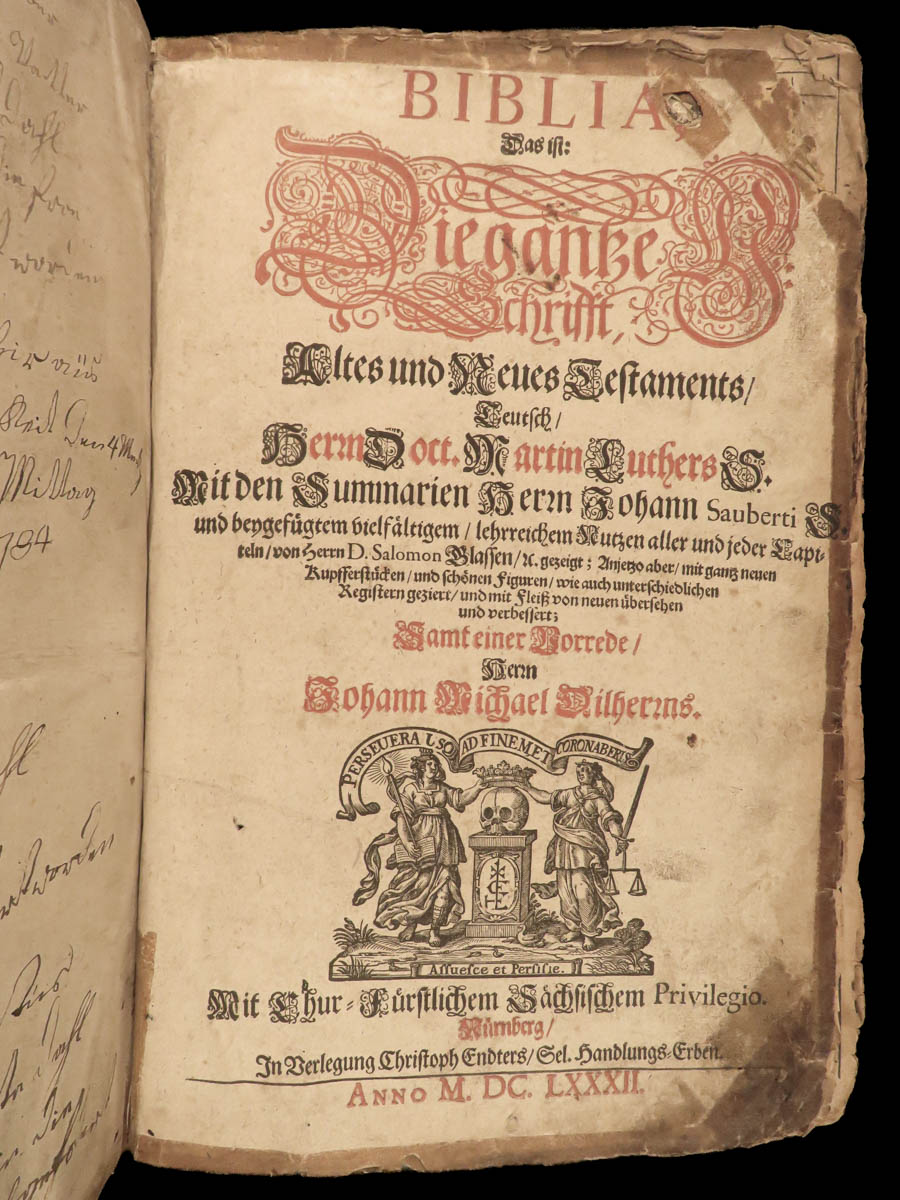 worden
Mittag
BIBLIA,
Das ist:
Die gantze H.
Schrifft,
Altes und Neues Testaments/
Teutsch/
Herrn Doct. Martin Luthers S.
Mit den Summarien Herrn Johann Sauberti S.
und beygefügtem vielfältigem/ lehrreichem Nutzen aller und jeder Capi-
teln/ von Herrn D. Salomon Glassen/ ꝛc. gezeigt; Anjetzo aber/ mit gantz neuen
Kupfferstücken/ und schönen Figuren/ wie auch unterschiedlichen
Registern geziert/ und mit Fleiß von neuen übersehen
und verbessert;
Samt einer Vorrede/
Herrn
Johann Michael Dilherrns.
PERSEVERA USQ AD FINEM ET CORONABERIS
Assuesce et Persiste.
Mit Chur-Fürstlichem Sächsischem Privilegio.
Nürnberg/
In Verlegung Christoph Endters/ Sel. Handlungs-Erben.
ANNO M. DC. LXXXII.